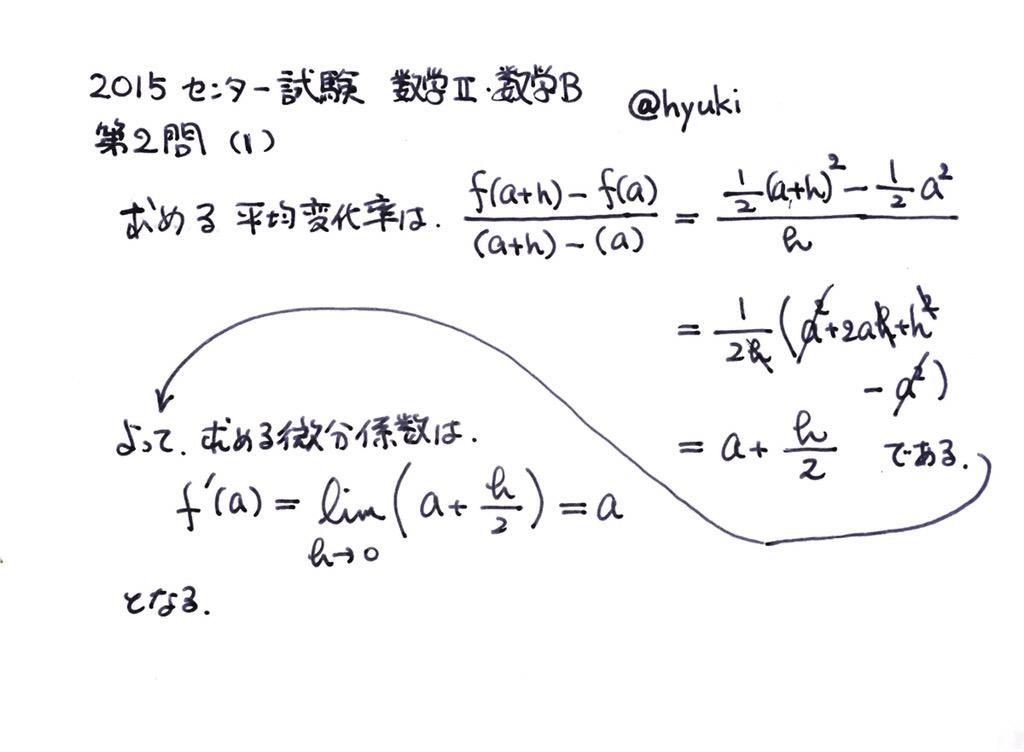 2015 センター試験 数学Ⅱ・数学B @hyuki
第2問 (1)
求める平均変化率は. \frac{f(a+h)-f(a)}{(a+h)-(a)} = \frac{\frac{1}{2}(a+h)^2-\frac{1}{2}a^2}{h}
= \frac{1}{2h}(a^2+2ah+h^2
-a^2)
= a+\frac{h}{2} である.
よって. 求める微分係数は.
f'(a) = \lim_{h→0}(a+\frac{h}{2}) = a
となる.